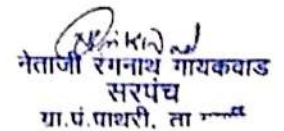 नेताजी रंगनाथ गायकवाड
सरपंच
ग्रा.पं.पाथरी. ता